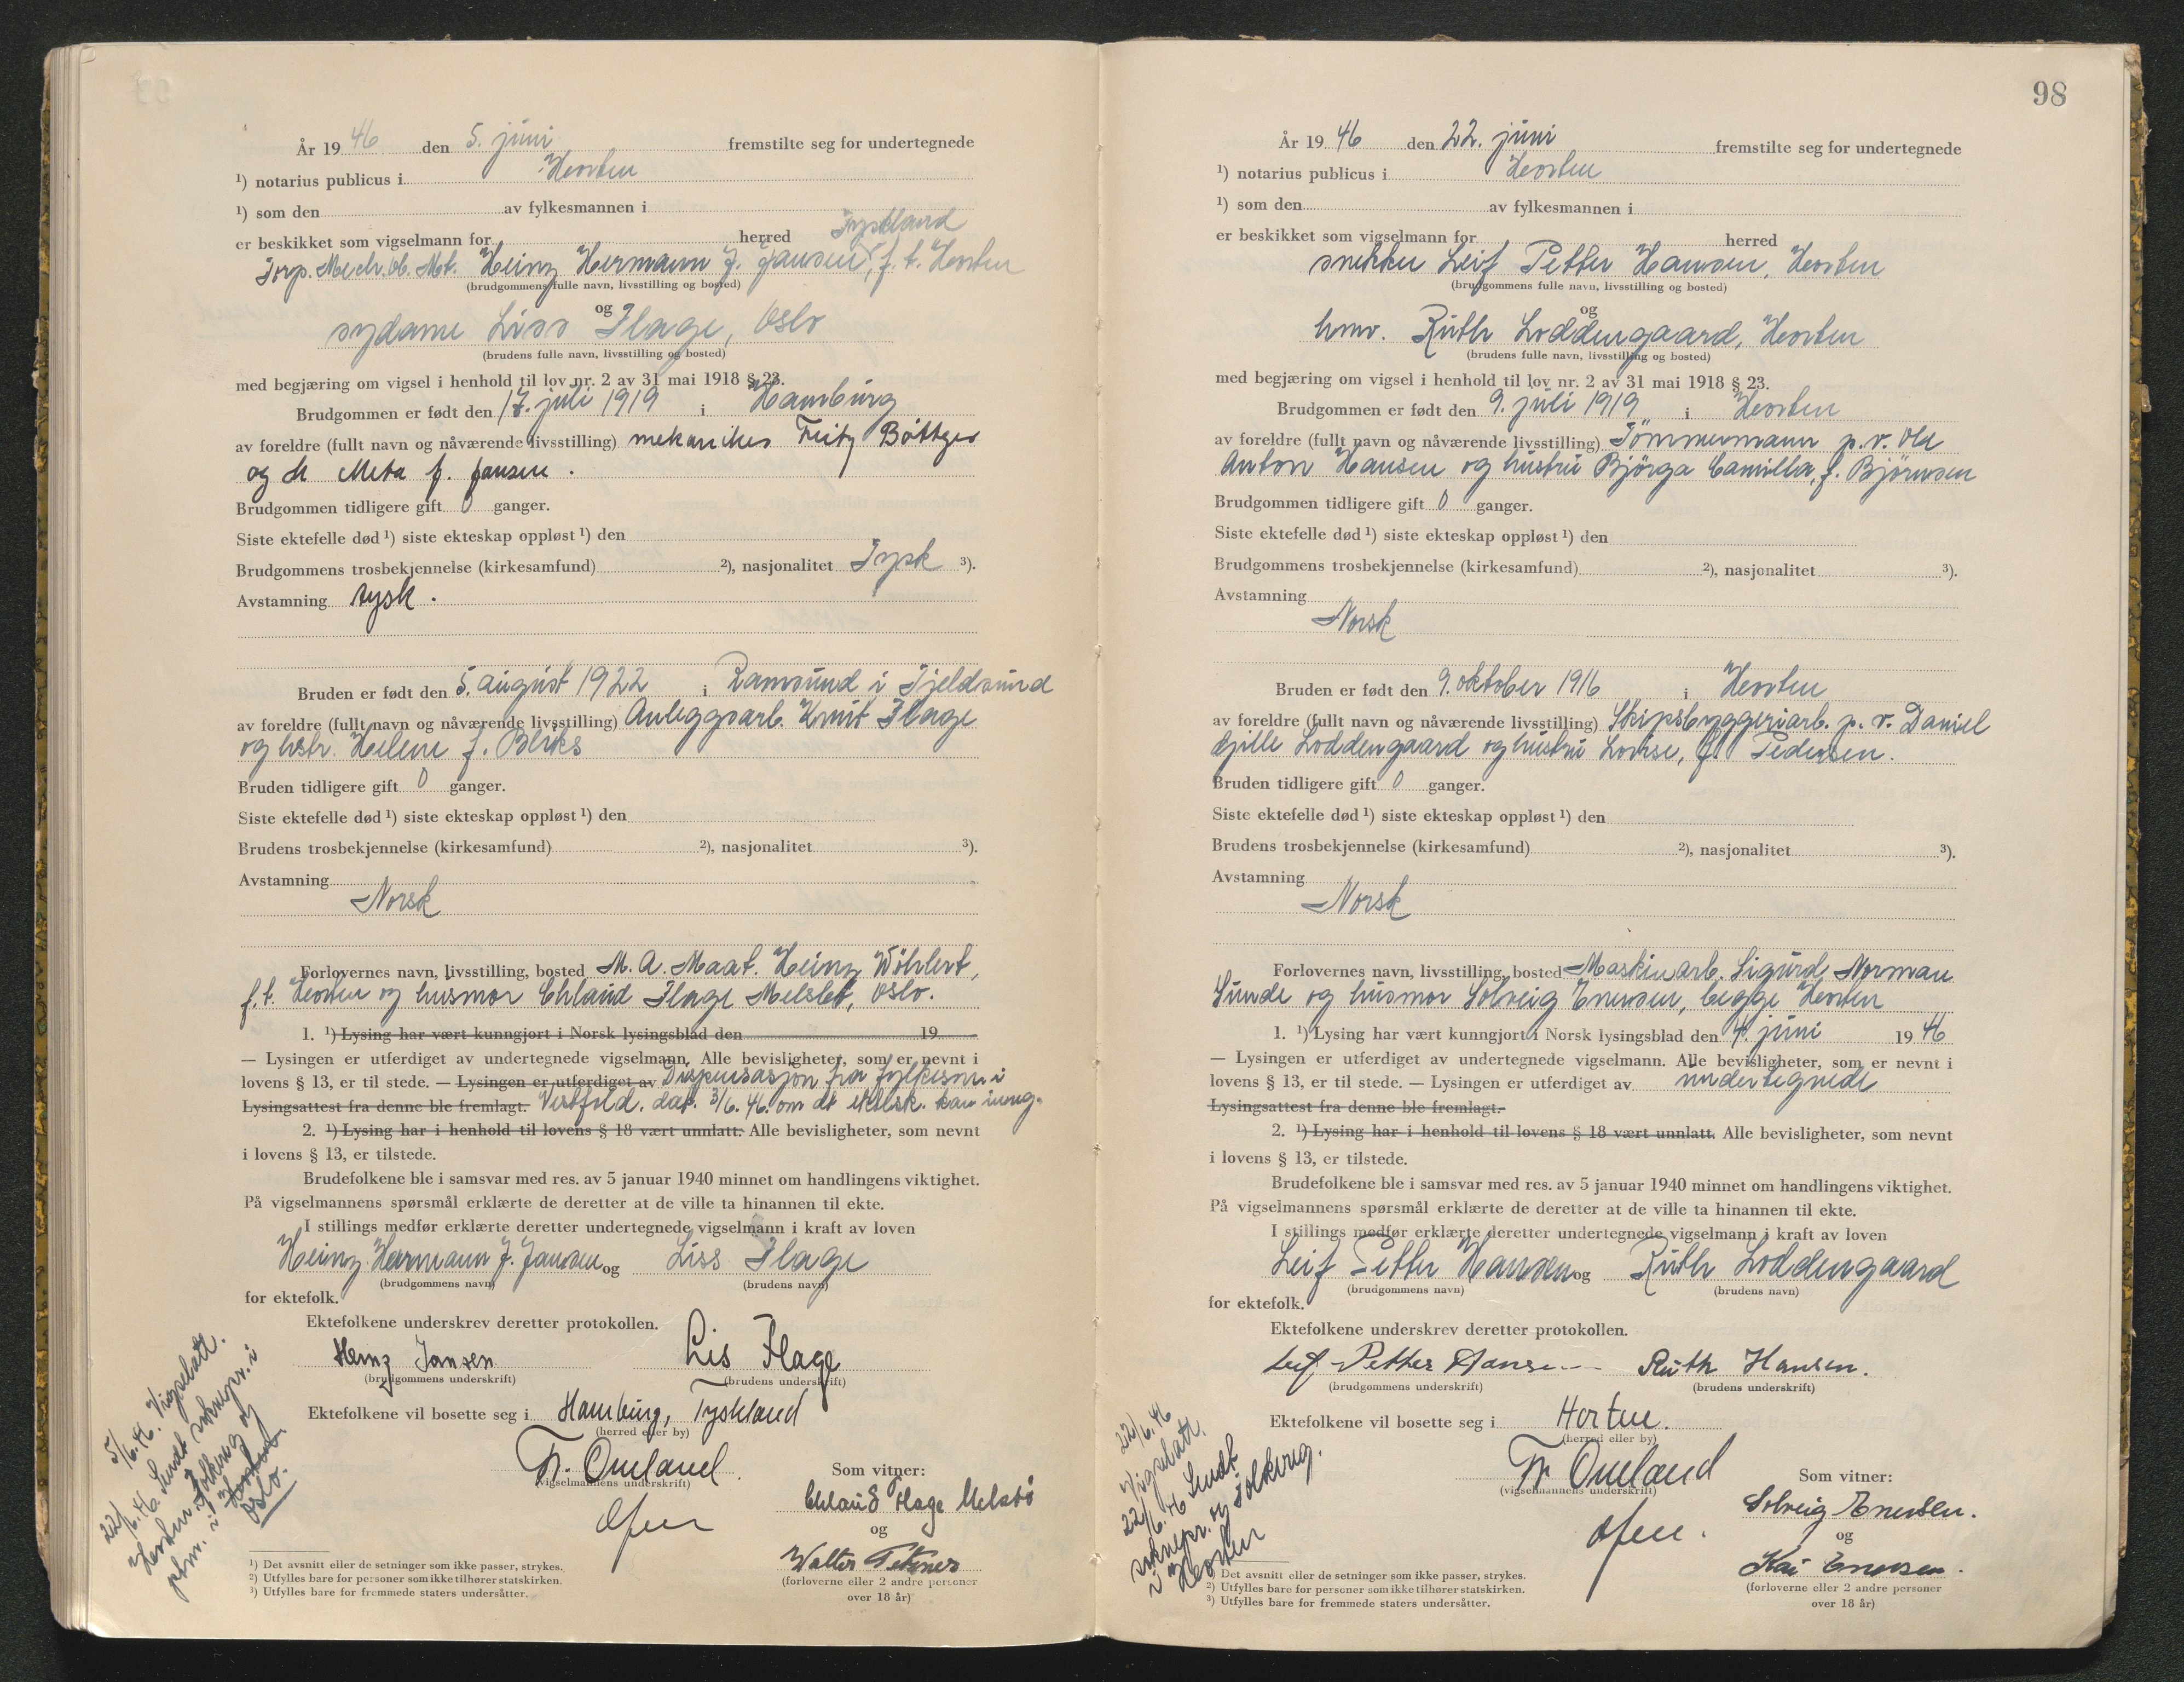 År 19 46 den 5. juni fremstilte seg for undertegnede
¹) notarius publicus i Horten
¹) som den av fylkesmannen i
er beskikket som vigselmann for herred Tyskland
Torp. Mech. Ob. Mt. Heinz Hermann J. Jansen, f. t. Horten
(brudgommens fulle navn, livsstilling og bosted)
og
sydame Liss Flage, Oslo
(brudens fulle navn, livsstilling og bosted)
med begjæring om vigsel i henhold til lov nr. 2 av 31 mai 1918 § 23.
Brudgommen er født den 17. juli 1919 i Hamburg
av foreldre (fullt navn og nåværende livsstilling) mekaniker Fritz Böttger
og h Meta f. Jansen.
Brudgommen tidligere gift 0 ganger.
Siste ektefelle død ¹) siste ekteskap oppløst ¹) den
Brudgommens trosbekjennelse (kirkesamfund) ²), nasjonalitet Tysk ³).
Avstamning tysk.
Bruden er født den 5. august 1922 i Ramsund i Tjeldsund
av foreldre (fullt navn og nåværende livsstilling) Anleggsarb. Knut Flage
og hstr. Helene f. Bliks
Bruden tidligere gift 0 ganger.
Siste ektefelle død ¹) siste ekteskap oppløst ¹) den
Brudens trosbekjennelse (kirkesamfund) ²), nasjonalitet ³).
Avstamning
Norsk
Forlovernes navn, livsstilling, bosted M. A. Maat. Heinz Wöhlert,
f. t. Horten og husmor Chlaud Flage Melsbø, Oslo.
1. ¹) Lysing har vært kunngjort i Norsk lysingsblad den 19
— Lysingen er utferdiget av undertegnede vigselmann. Alle bevisligheter, som er nevnt i
lovens § 13, er til stede. — Lysingen er utferdiget av Dispensasjon fra fylkesm. i
Lysingsattest fra denne ble fremlagt. Vestfold. dat. 3/6. 46. om at ektesk. kan inng.
2. ¹) Lysing har i henhold til lovens § 18 vært unnlatt. Alle bevisligheter, som nevnt
i lovens § 13, er tilstede.
Brudefolkene ble i samsvar med res. av 5 januar 1940 minnet om handlingens viktighet.
På vigselmannens spørsmål erklærte de deretter at de ville ta hinannen til ekte.
I stillings medfør erklærte deretter undertegnede vigselmann i kraft av loven
Heinz Hermann J. Jansen og Liss Flage
(brudgommens navn) (brudens navn)
for ektefolk.
Ektefolkene underskrev deretter protokollen.
Heinz Jansen Lis Flage
(brudgommens underskrift) (brudens underskrift)
Ektefolkene vil bosette seg i Hamburg, Tyskland
(herred eller by)
Fr. Omland
(vigselmannens underskrift)
Som vitner:
Chlaud Flage Melsbø
og
Walter
(forloverne eller 2 andre personer
over 18 år)
5/6. 46. Vigselatt.
22/6. 46. Sendt soknepr. i
Horten, Folkereg og
pfm. i Horten
Oslo.
¹) Det avsnitt eller de setninger som ikke passer, strykes.
²) Utfylles bare for personer som ikke tilhører statskirken.
³) Utfylles bare for fremmede staters undersåtter.
98
År 19 46 den 22. juni fremstilte seg for undertegnede
¹) notarius publicus i Horten
¹) som den av fylkesmannen i
er beskikket som vigselmann for herred
snekker Leif Petter Hansen, Horten
(brudgommens fulle navn, livsstilling og bosted)
og
hmv. Ruth Loddengaard, Horten
(brudens fulle navn, livsstilling og bosted)
med begjæring om vigsel i henhold til lov nr. 2 av 31 mai 1918 § 23.
Brudgommen er født den 9. juli 1919 i Horten
av foreldre (fullt navn og nåværende livsstilling) Tömmermann p. v. Ole
Anton Hansen og hustru Björga Camilla, f. Björnsen
Brudgommen tidligere gift 0 ganger.
Siste ektefelle død ¹) siste ekteskap oppløst ¹) den
Brudgommens trosbekjennelse (kirkesamfund) ²), nasjonalitet ³).
Avstamning
Norsk
Bruden er født den 9. oktober 1916 i Horten
av foreldre (fullt navn og nåværende livsstilling) Skipsbyggeriarb. p. v. Daniel
Loddengaard og hustru Lovise, f. Pedersen.
Bruden tidligere gift 0 ganger.
Siste ektefelle død ¹) siste ekteskap oppløst ¹) den
Brudens trosbekjennelse (kirkesamfund) ²), nasjonalitet ³).
Avstamning
Norsk
Forlovernes navn, livsstilling, bosted Maskinarb. Sigurd Norman
Sunde og husmor Solveig Enersen, begge Horten
1. ¹) Lysing har vært kunngjort i Norsk lysingsblad den 4. juni 19 46
— Lysingen er utferdiget av undertegnede vigselmann. Alle bevisligheter, som er nevnt i
lovens § 13, er til stede. — Lysingen er utferdiget av undertegnede
Lysingsattest fra denne ble fremlagt.
2. ¹) Lysing har i henhold til lovens § 18 vært unnlatt. Alle bevisligheter, som nevnt
i lovens § 13, er tilstede.
Brudefolkene ble i samsvar med res. av 5 januar 1940 minnet om handlingens viktighet.
På vigselmannens spørsmål erklærte de deretter at de ville ta hinannen til ekte.
I stillings medfør erklærte deretter undertegnede vigselmann i kraft av loven
Leif Petter Hansen og Ruth Loddengaard
(brudgommens navn) (brudens navn)
for ektefolk.
Ektefolkene underskrev deretter protokollen.
Leif Petter Hansen Ruth Hansen.
(brudgommens underskrift) (brudens underskrift)
Ektefolkene vil bosette seg i Horten.
(herred eller by)
Fr Omland
(vigselmannens underskrift)
Som vitner:
Solveig Enersen.
og
Kai Enersen.
(forloverne eller 2 andre personer
over 18 år)
22/6. 46
Vigselatt.
22/6. 46 Sendt
soknepr. og Folkereg.
i Horten
¹) Det avsnitt eller de setninger som ikke passer, strykes.
²) Utfylles bare for personer som ikke tilhører statskirken.
³) Utfylles bare for fremmede staters undersåtter.